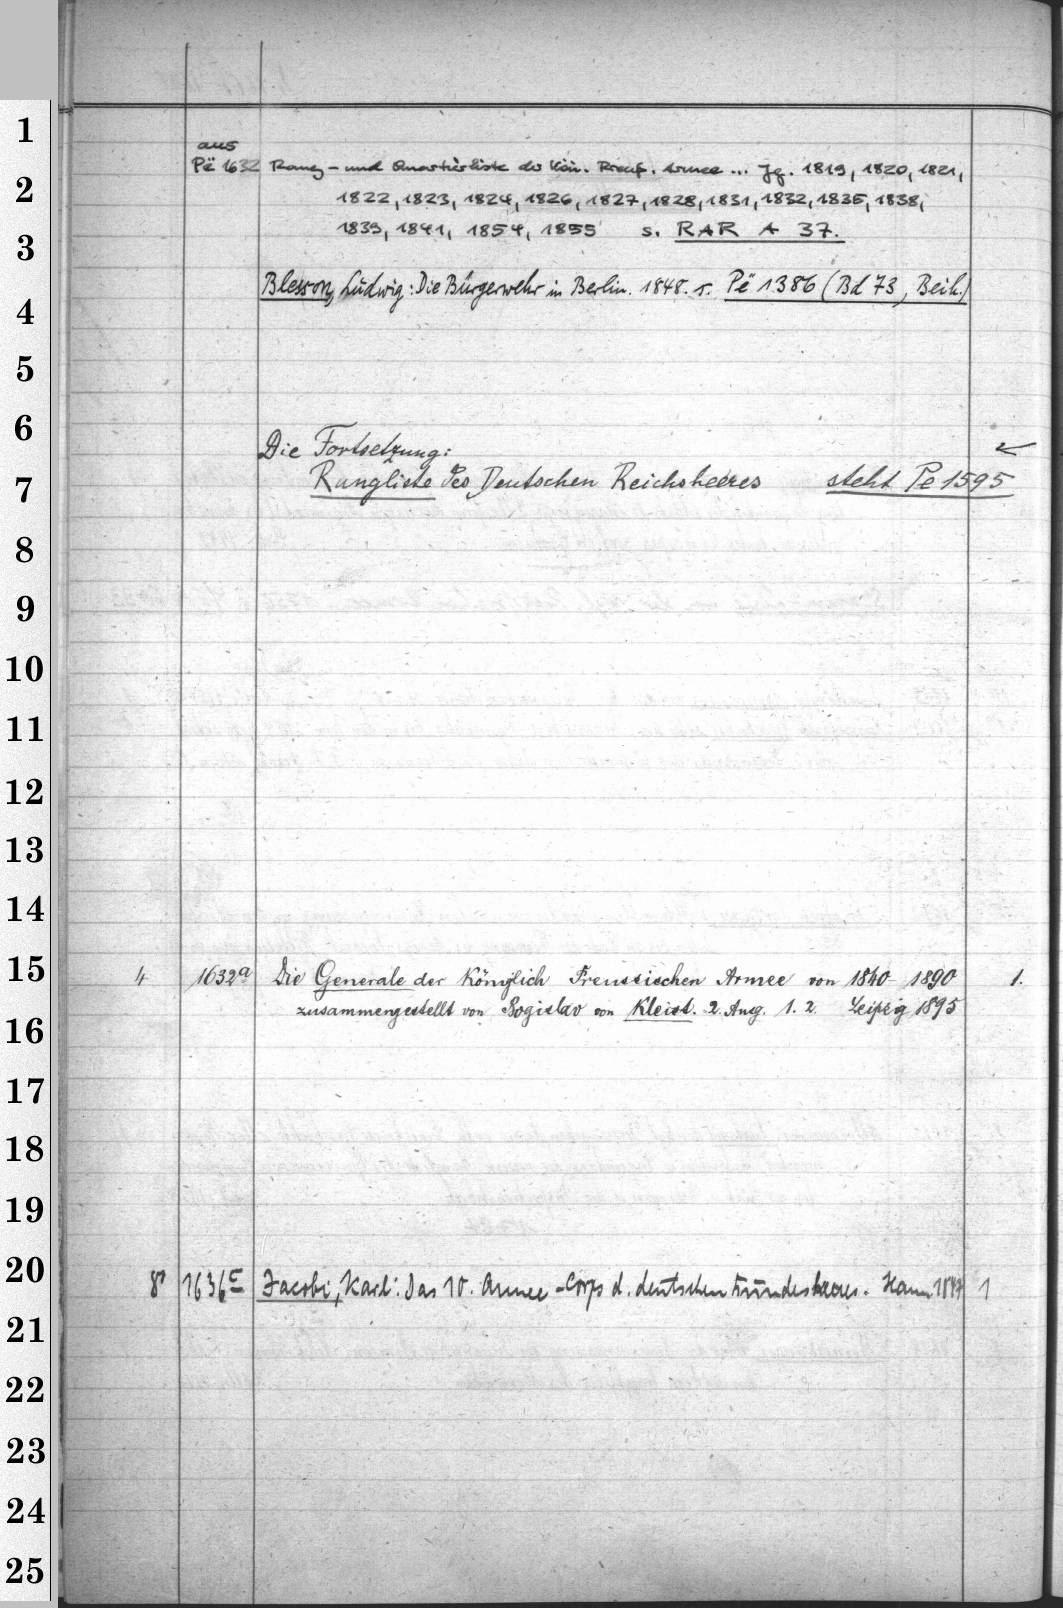 1
aus
Pë 1632 Rang- und Quartierliste der Kön. Preuß. Armee ... Jg. 1819, 1820, 1821,
2
1822, 1823, 1824, 1826, 1827, 1828, 1831, 1832, 1835, 1838,
3
1839, 1841, 1854, 1855 s. RAR A 37.
Blesson, Ludwig: Die Bürgerwehr in Berlin. 1848. s. Pë 1386 (Bd 73, Beih.)
4
5
6
Die Fortsetzung:
7
Rangliste des Deutschen Reichsheeres steht Pe 1595
8
9
10
11
12
13
14
15
4 1632a Die Generale der Königlich Preussischen Armee von 1840-1890 1.
zusammengestellt von Bogislav von Kleist. 2. Ausg. 1. 2. Leipzig 1895
16
17
18
19
20
8° 1636c Jacobi, Karl: Das 10. Armee-Corps d. deutschen Bundesheeres. Hann. 1847 1
21
22
23
24
25